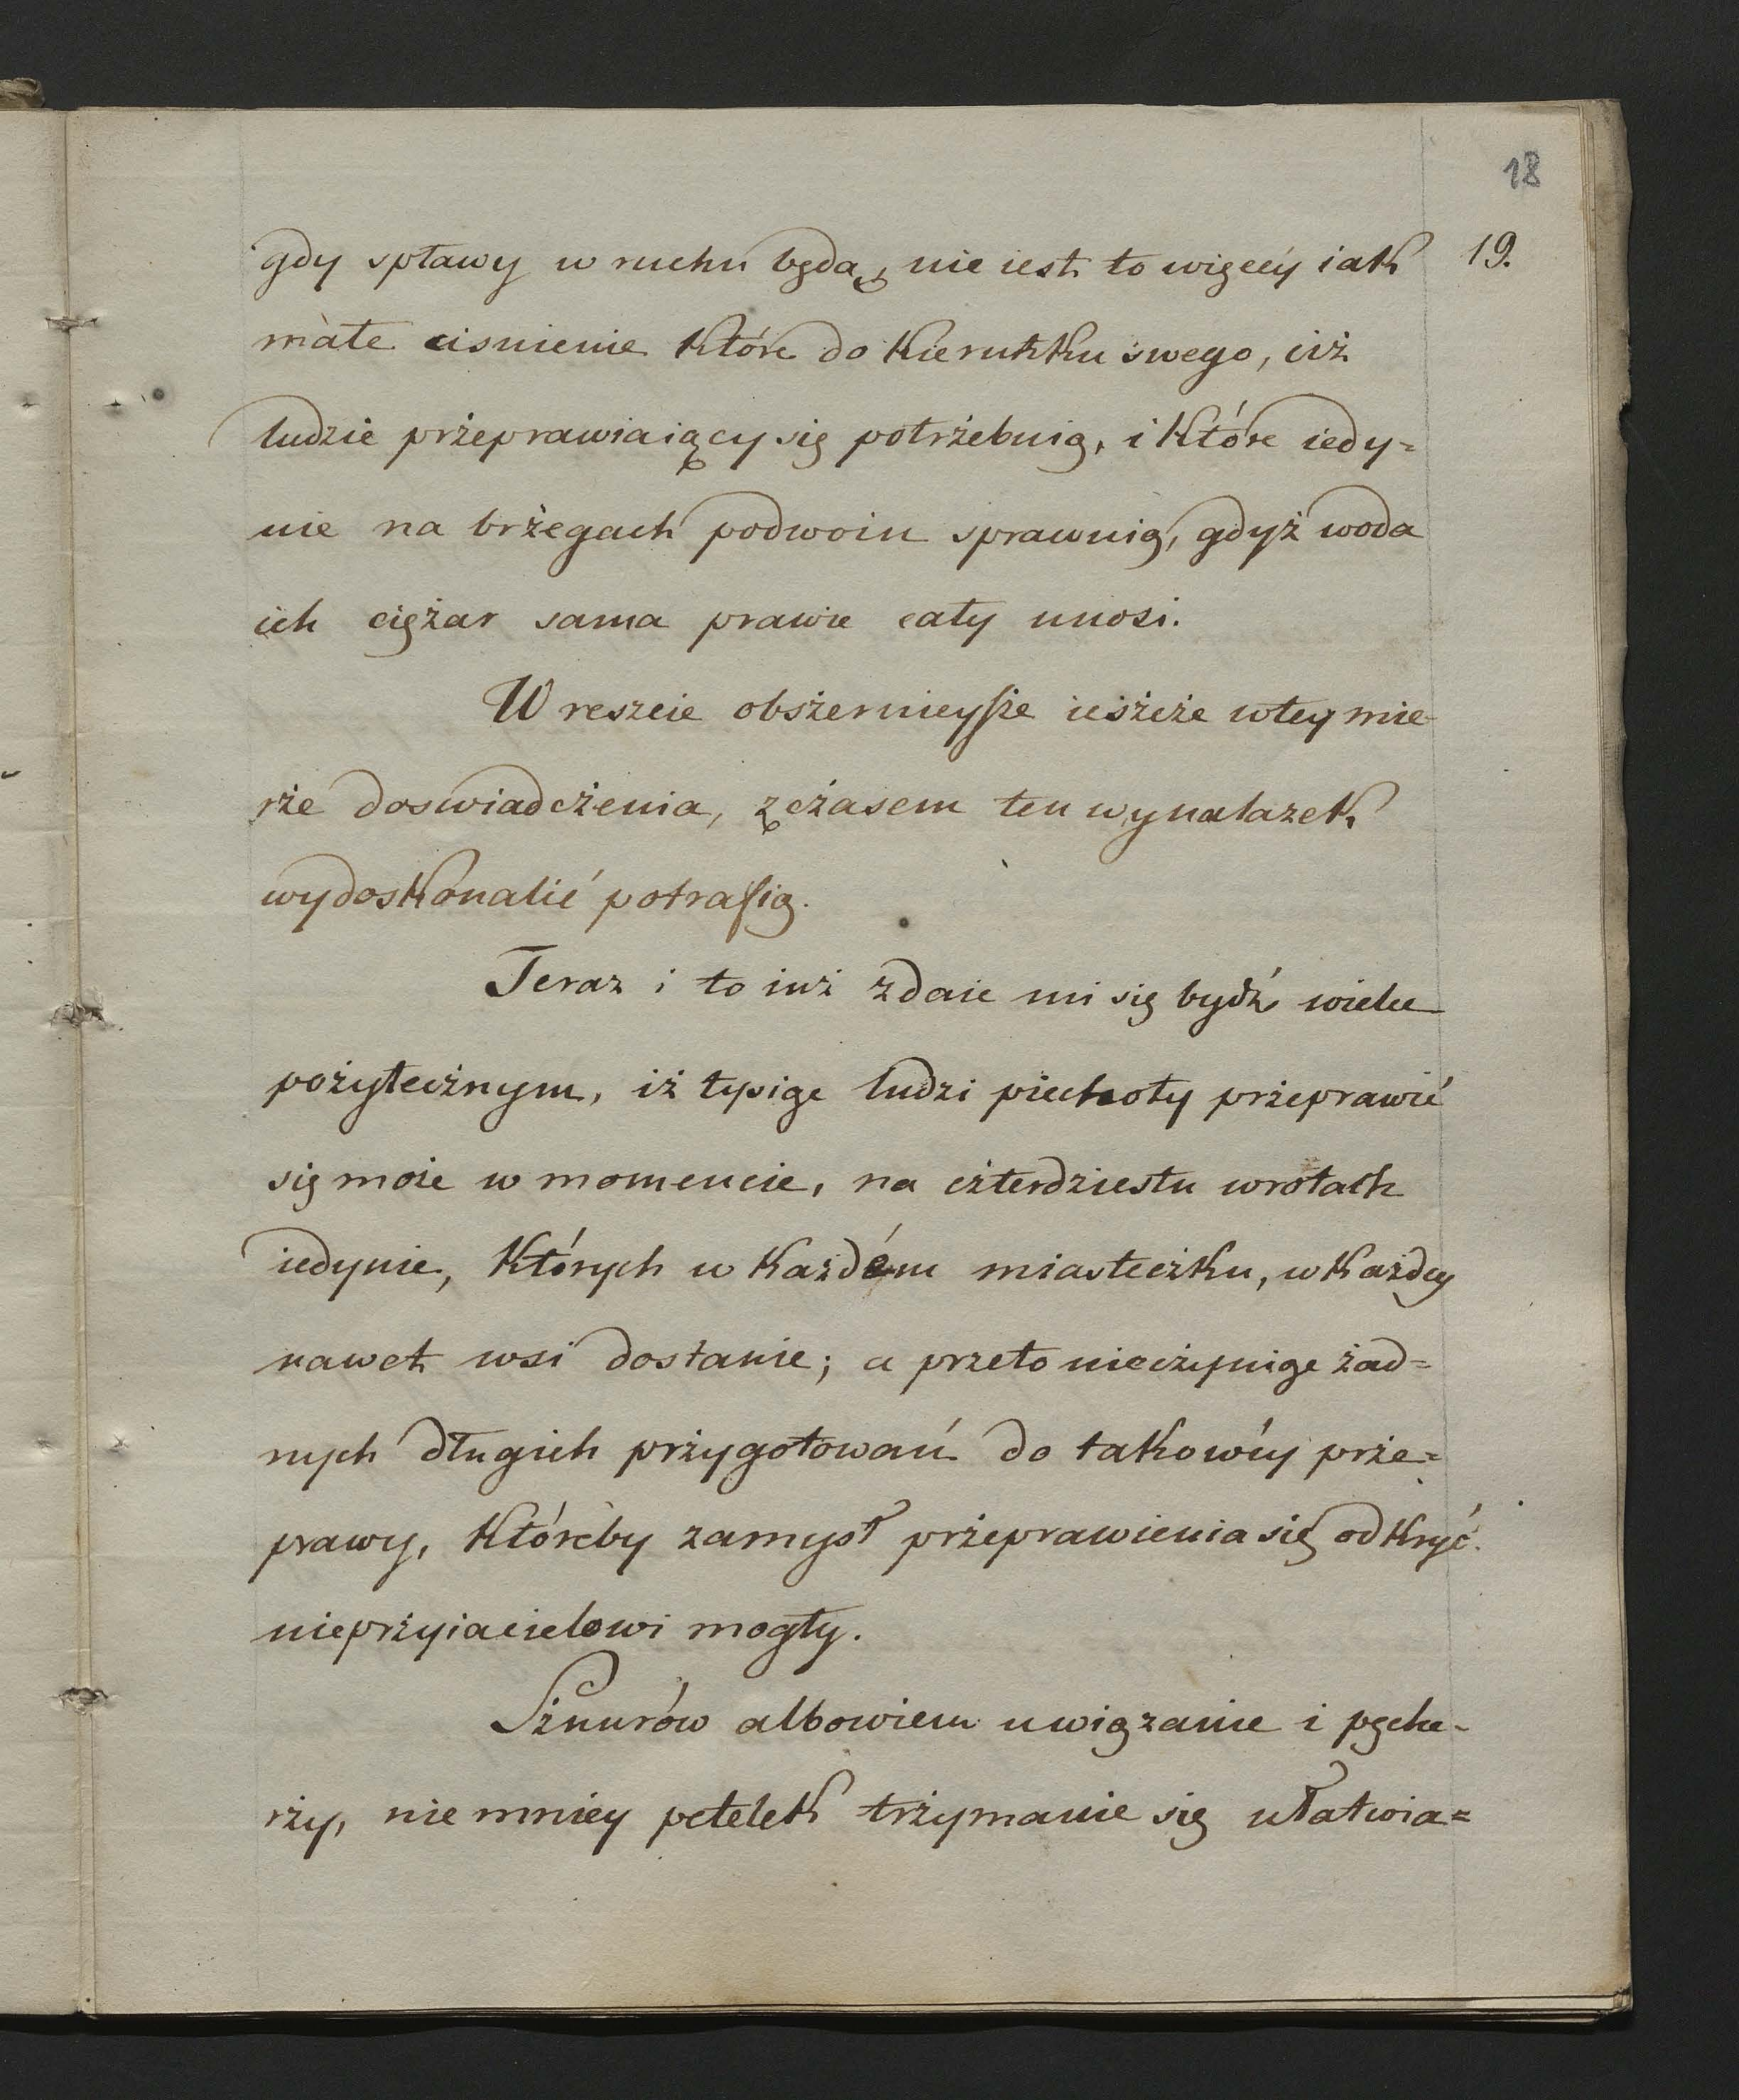 18
19.
gdy spławy w ruchu będą, nie iest to więcéy iak
małe cisnienie które do kierunku swego, ciż
ludzie prżeprawiaiący się potrżebuią, i które iedy=
nie na brżegach podwoiu sprawuią, gdyż woda
ich ciężar sama prawie cały unosi.
W reszcie obsżernieysże iesżcże wtey mie-
rże doswiadcżenia, zcżasem ten wynalazek
wydoskonalić potrafią.
Teraz i to iuż zdaie mi się bydź wielce
pożytecżnym, iż tysiąc ludzi piechoty prżeprawić
się może w momencie, na cżterdziestu wrotach
iedynie, których w każdém miastecżku, w każdey
nawet wsi dostanie; a przeto niecżyniąc żad=
nych długich prżygotowań do takowéy prże=
prawy, któreby zamysł prżeprawienia się odkryć
nieprżyiacielowi mogły.
Sżnurów albowiem uwiązanie i pęche-
rży, nie mniey petelek trżymanie się ułatwia=